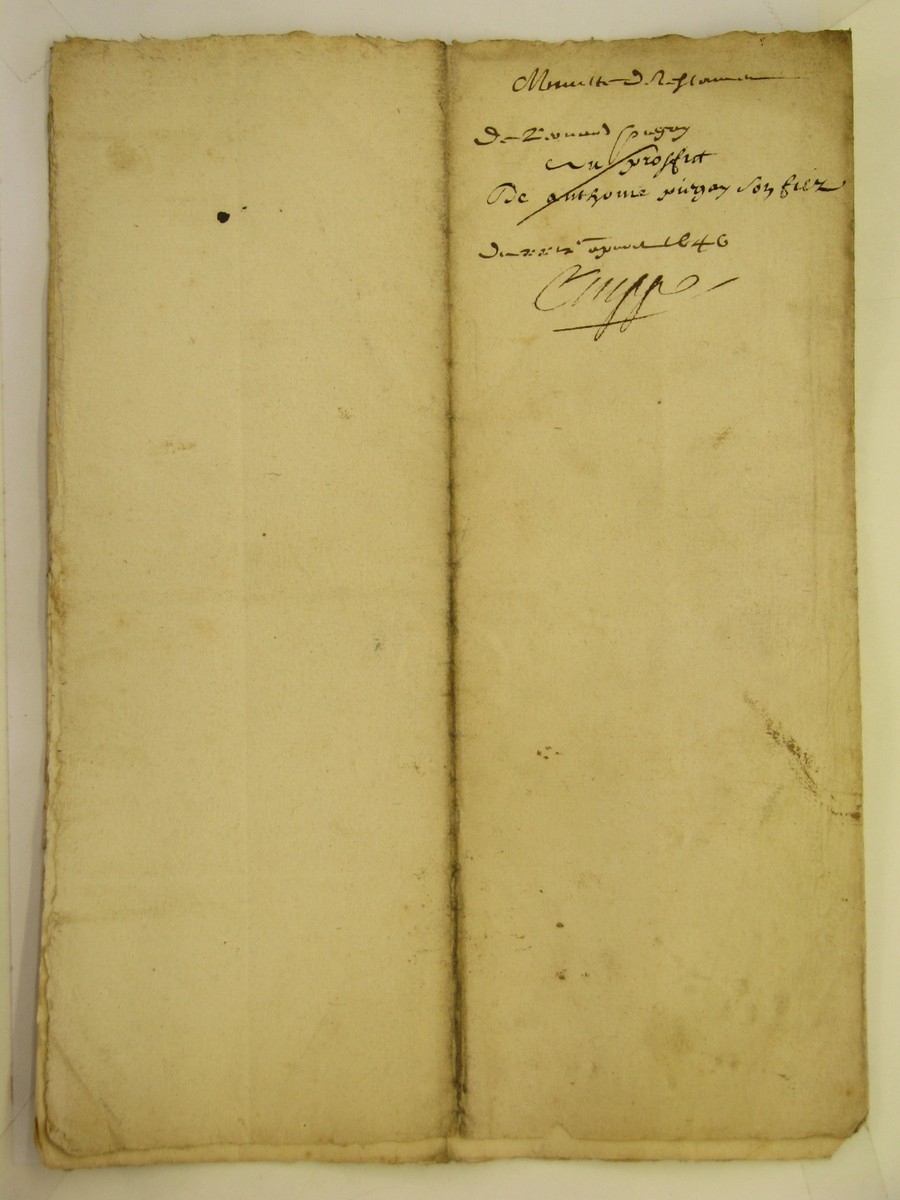 Minutte de Testament
De Leonard pugoy
Au proffit
De anthoine pugoy son filz
du xxix apvril 1646